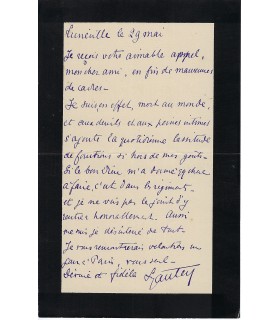 Lunéville le 29 mai
Je reçois votre aimable appel,
mon cher ami, en fin de mauvaises
de cadres -
Je suis en effet, mort au monde,
et aux deuils et aux peines intimes
s'ajoute la quotidienne lassitude
de fonctions si hors de mes goûts.
Si le bon Dieu m'a donné qq chose
à faire, c'est dans le régiment -
et je ne vais pas le point d'y
rentrer honorablement. Aussi
me suis je désintéressé de tout -
Je vous rencontrerais volontiers un
jour à Paris, vous seul -
Dévoué et fidèle Lyautey